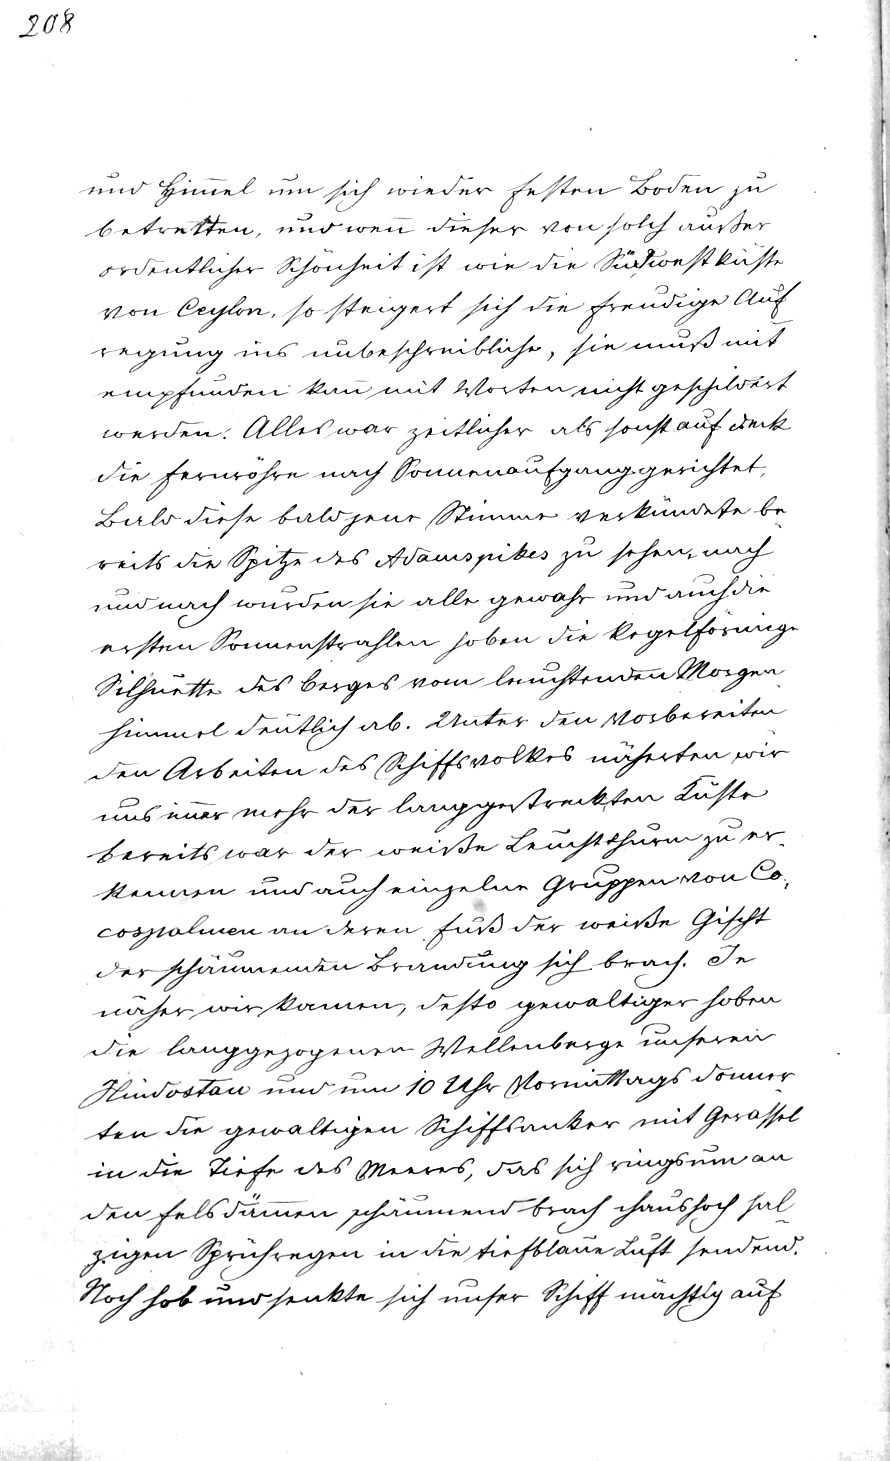 208
und Him̄el um sich wieder festen Boden zu
betretten, und wen̄ dieser von solch außer
ordentlicher Schönheit ist wie die Südwestküste
von Ceylon, so steigert sich die freudige Auf
regung ins unbeschreibliche, sie muß mit
empfunden kan̄ mit Worten nicht geschildert
werden. Alles war zeitlicher als sonst auf deck
die Fernröhre nach Sonnenaufgang gerichtet,
Bald diese bald jene Stimme verkündete be
reits die Spitze des Adamspikes zu sehen, nach
und nach wurden sie alle gewahr und auch die
ersten Sonnenstrahlen hoben die kegelförmige
Silhuette des Berges vom leuchtenden Morgen
himmel deutlich ab. Unter den vorbereiten
den Arbeiten des Schiffsvolkes näherten wir
uns im̄er mehr der langgestreckten Küste
bereits war der weiße Leuchtthurm zu er-
kennen und auch einzelne Gruppen von Co-
cospalmen an deren Fuß der weiße Gischt
der schäumenden Brandung sich brach. Je
näher wir kamen, desto gewaltiger hoben
die langgezogenen Wellenberge unseren
Hindostan und um 10 Uhr Vormittags donner
ten die gewaltigen Schiffsanker mit Gerassel
in die Tiefe des Meeres, das sich ringsum an
den Felsdäm̄en schäumend brach haushoch sal
zigen Sprühregen in die tiefblaue Luft sendend.
Noch hob und senkte sich unser Schiff mächtig auf